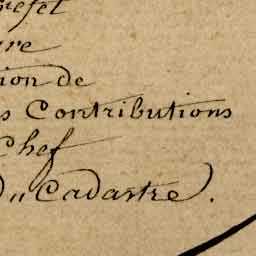 réfet
re
ion de
s Contributions
Chef
du Cadastre).